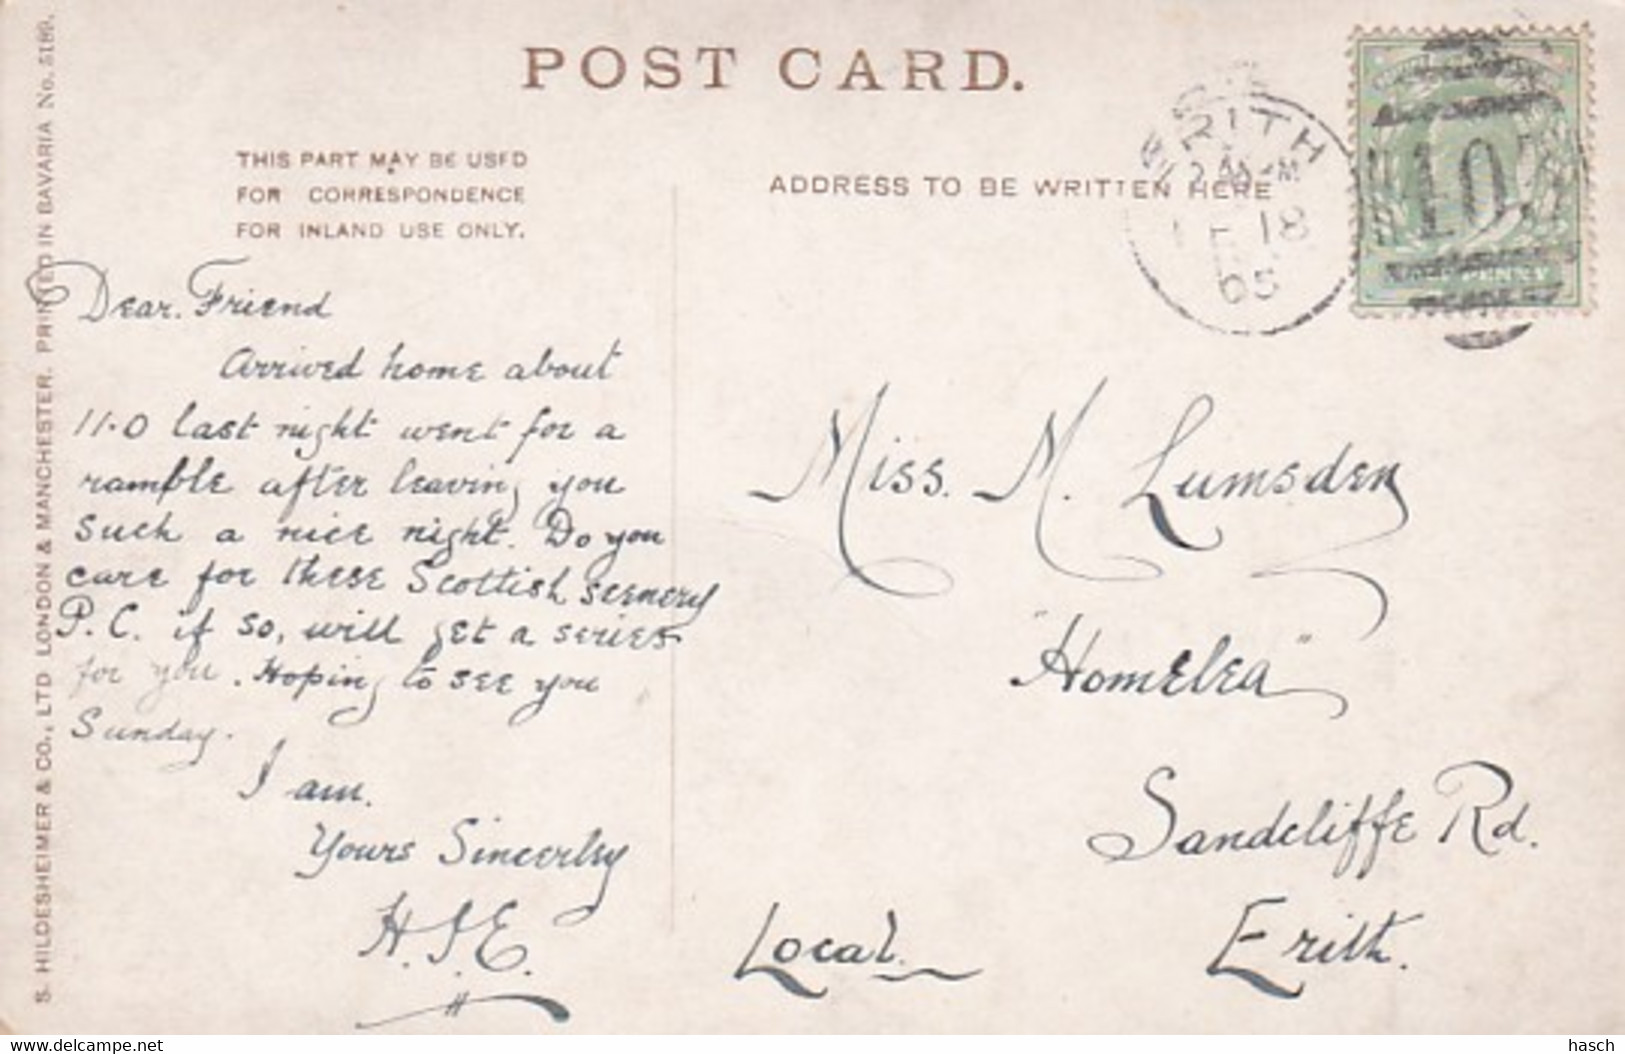 POST CARD.
THIS PART MAY BE USED
FOR CORRESPONDENCE
FOR INLAND USE ONLY.
ADDRESS TO BE WRITTEN HERE
ERITH
18
05
PENNY
Dear. Friend
Arrived home about
11.0 last night went for a
ramble after leaving you
such a nice night. Do you
care for these Scottish scenery
P.C. if so, will get a series
for you. Hoping to see you
Sunday.
I am.
Yours Sincerley
Miss. M. Lumsden
"Homelea"
Sandcliffe Rd.
Erith.
Local.
S. HILDESHEIMER & CO., LTD LONDON & MANCHESTER. PRINTED IN BAVARIA No. 5189.
delcampe.net
hasch